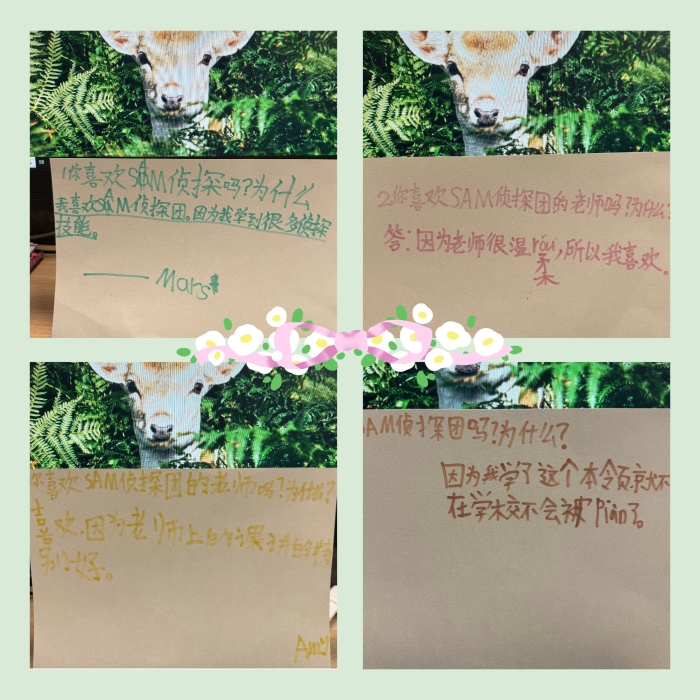 1你喜欢SAM侦探吗?为什么
我喜欢SAM侦探团。因为我学到很多侦探
技能。
—— Mars
2.你喜欢SAM侦探团的老师吗?为什么?
答:因为老师很湿róu,所以我喜欢.
柔
你喜欢SAM侦探团的老师吗?为什么?
喜欢.因为老师上的课讲的特
别好。
Amy
AM侦探团吗?为什么?
因为我学了这个本领就不
在学校不会被Piàn了。